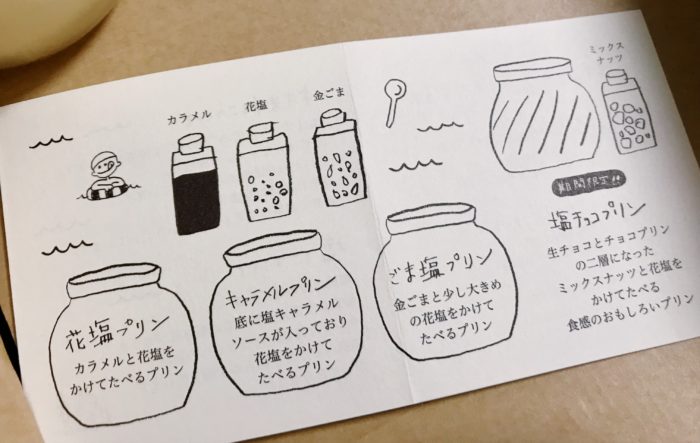 カラメル
花塩
金ごま
ミックス
ナッツ
花塩プリン
カラメルと花塩を
かけてたべるプリン
キャラメルプリン
底に塩キャラメル
ソースが入っており
花塩をかけて
たべるプリン
ごま塩プリン
金ごまと少し大きめ
の花塩をかけて
たべるプリン
期間限定!!
塩チョコプリン
生チョコとチョコプリン
の二層になった
ミックスナッツと花塩を
かけてたべる
食感のおもしろいプリン